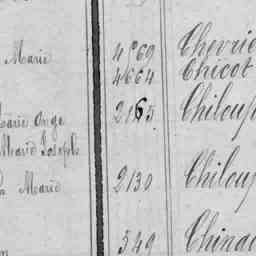 Marie 4869 Chevrie
4664 Chicot
Marie Ange 2165 Chiloup
Meard Joseph
Marie 2130 Chiloup
549 Chinac